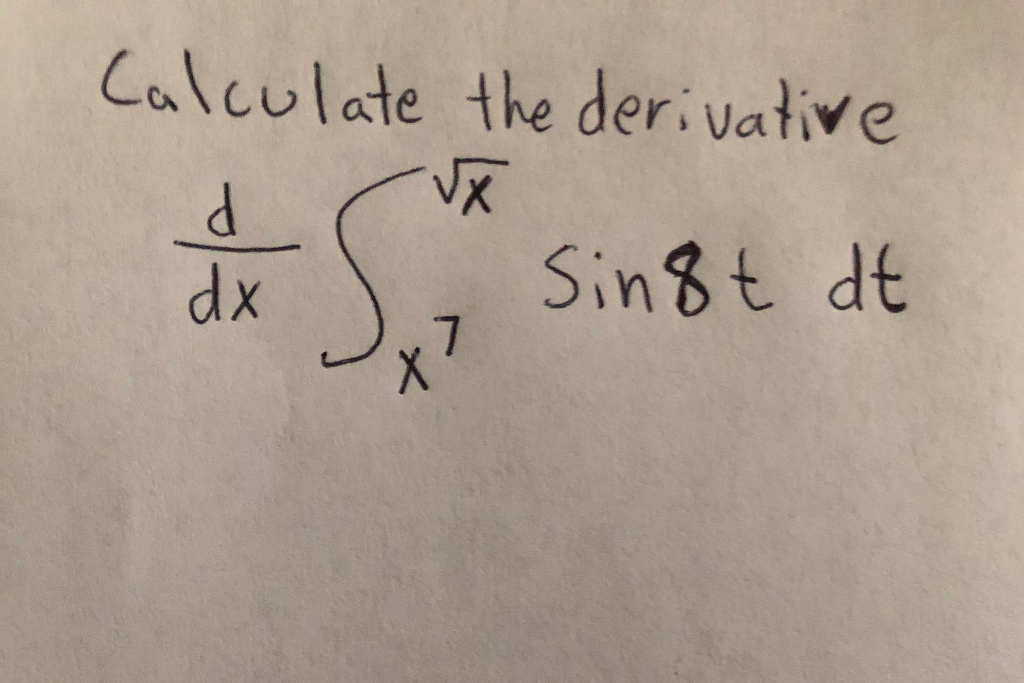 Calculate the derivative
d/dx ∫_{x^7}^{√x} Sin8t dt